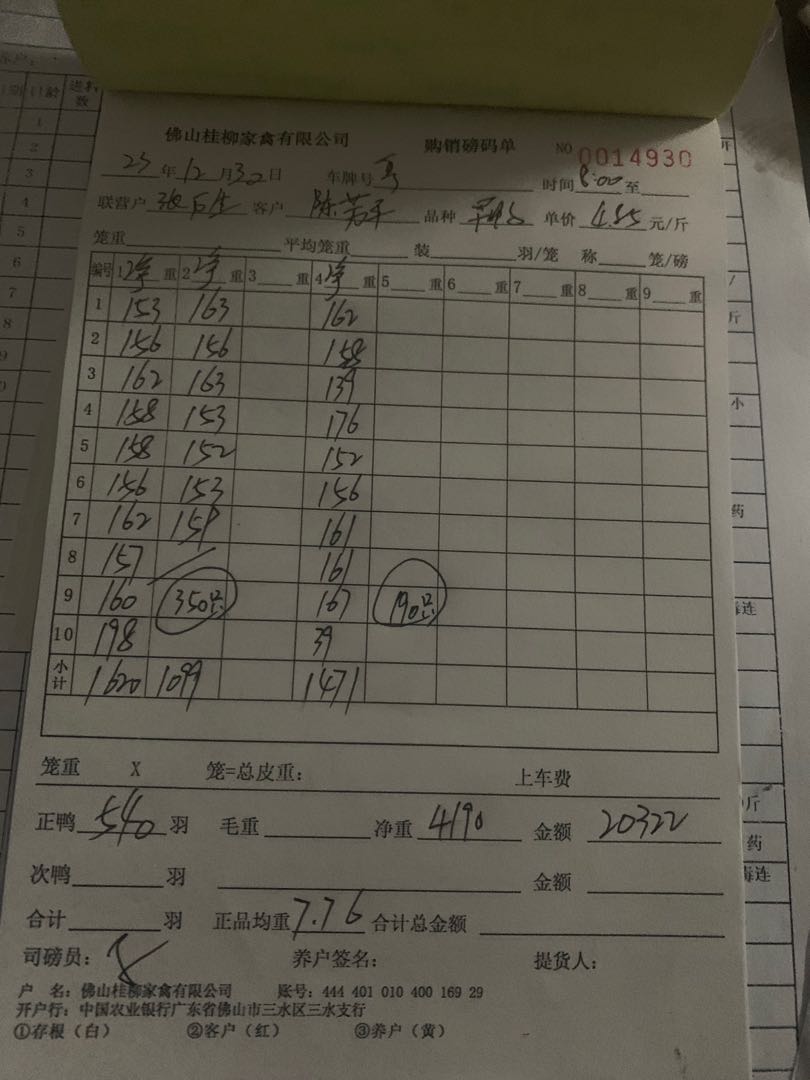 佛山桂柳家禽有限公司 购销磅码单 NO 0014930
25年12月30日 车牌号 时间8:00至
联营户 客户 陈若平 品种 单价 4.85 元/斤
笼重 平均笼重 装 羽/笼 称 笼/磅
编号 1净重 2净重 3 重 4净重 5 重 6 重 7 重 8 重 9 重
1 153 163 162
2 156 156 158
3 162 163 139
4 158 153 176
5 158 152 152
6 156 153 156
7 162 159 161
8 157 161
9 160 350只 167 190只
10 198 39
小计 1620 1099 1471
笼重 X 笼=总皮重: 上车费
正鸭 540 羽 毛重 净重 4190 金额 20322
次鸭 羽 金额
合计 羽 正品均重 7.76 合计总金额
司磅员: 养户签名: 提货人:
户 名: 佛山桂柳家禽有限公司 账号: 444 401 010 400 169 29
开户行: 中国农业银行广东省佛山市三水区三水支行
①存根（白） ②客户（红） ③养户（黄）